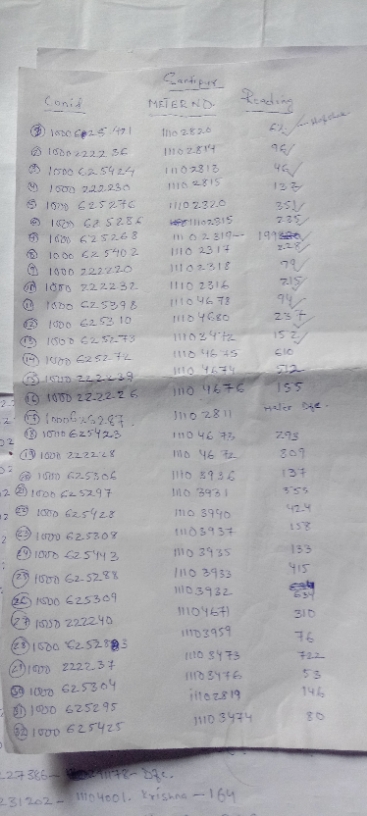 Conid METER NO. Reading
① 1000625421 11102820 62
② 1000222236 11102814 96
③ 1000625424 11102813 46
④ 1000222230 11102815 137
⑤ 1000625276 11102320 352
⑥ 1000625286 11102315 235
⑦ 1000625268 11102319
⑧ 1000625402 11102317 228
⑨ 1000222220 11102318 79
⑩ 1000222232 11102316 215
⑪ 1000625398 11104678 94
⑫ 1000625310 11104680 237
⑬ 1000625273 11103472 152
⑭ 1000625272 11104675 610
⑮ 1000222239 11104674 512
⑯ 1000222226 11104676 155
⑰ 1000625287 11102811 Meter Dfc.
⑱ 1000625423 11104673 293
⑲ 1000222228 11104672 809
⑳ 1000625306 11103936 137
㉑ 1000625297 11103931 553
㉒ 1000625428 11103940 424
㉓ 1000625308 11103937 158
㉔ 1000625443 11103935 133
㉕ 1000625288 11103933 415
㉖ 1000625309 11103932 634
㉗ 1000222240 11104671 310
㉘ 1000625283 11103959 76
㉙ 1000222237 11103473 722
㉚ 1000625304 11103476 53
㉛ 1000625295 11102819 146
㉜ 1000625425 11103474 80
227386- 1178- Dfc.
231202- 1104001. Krishna - 164